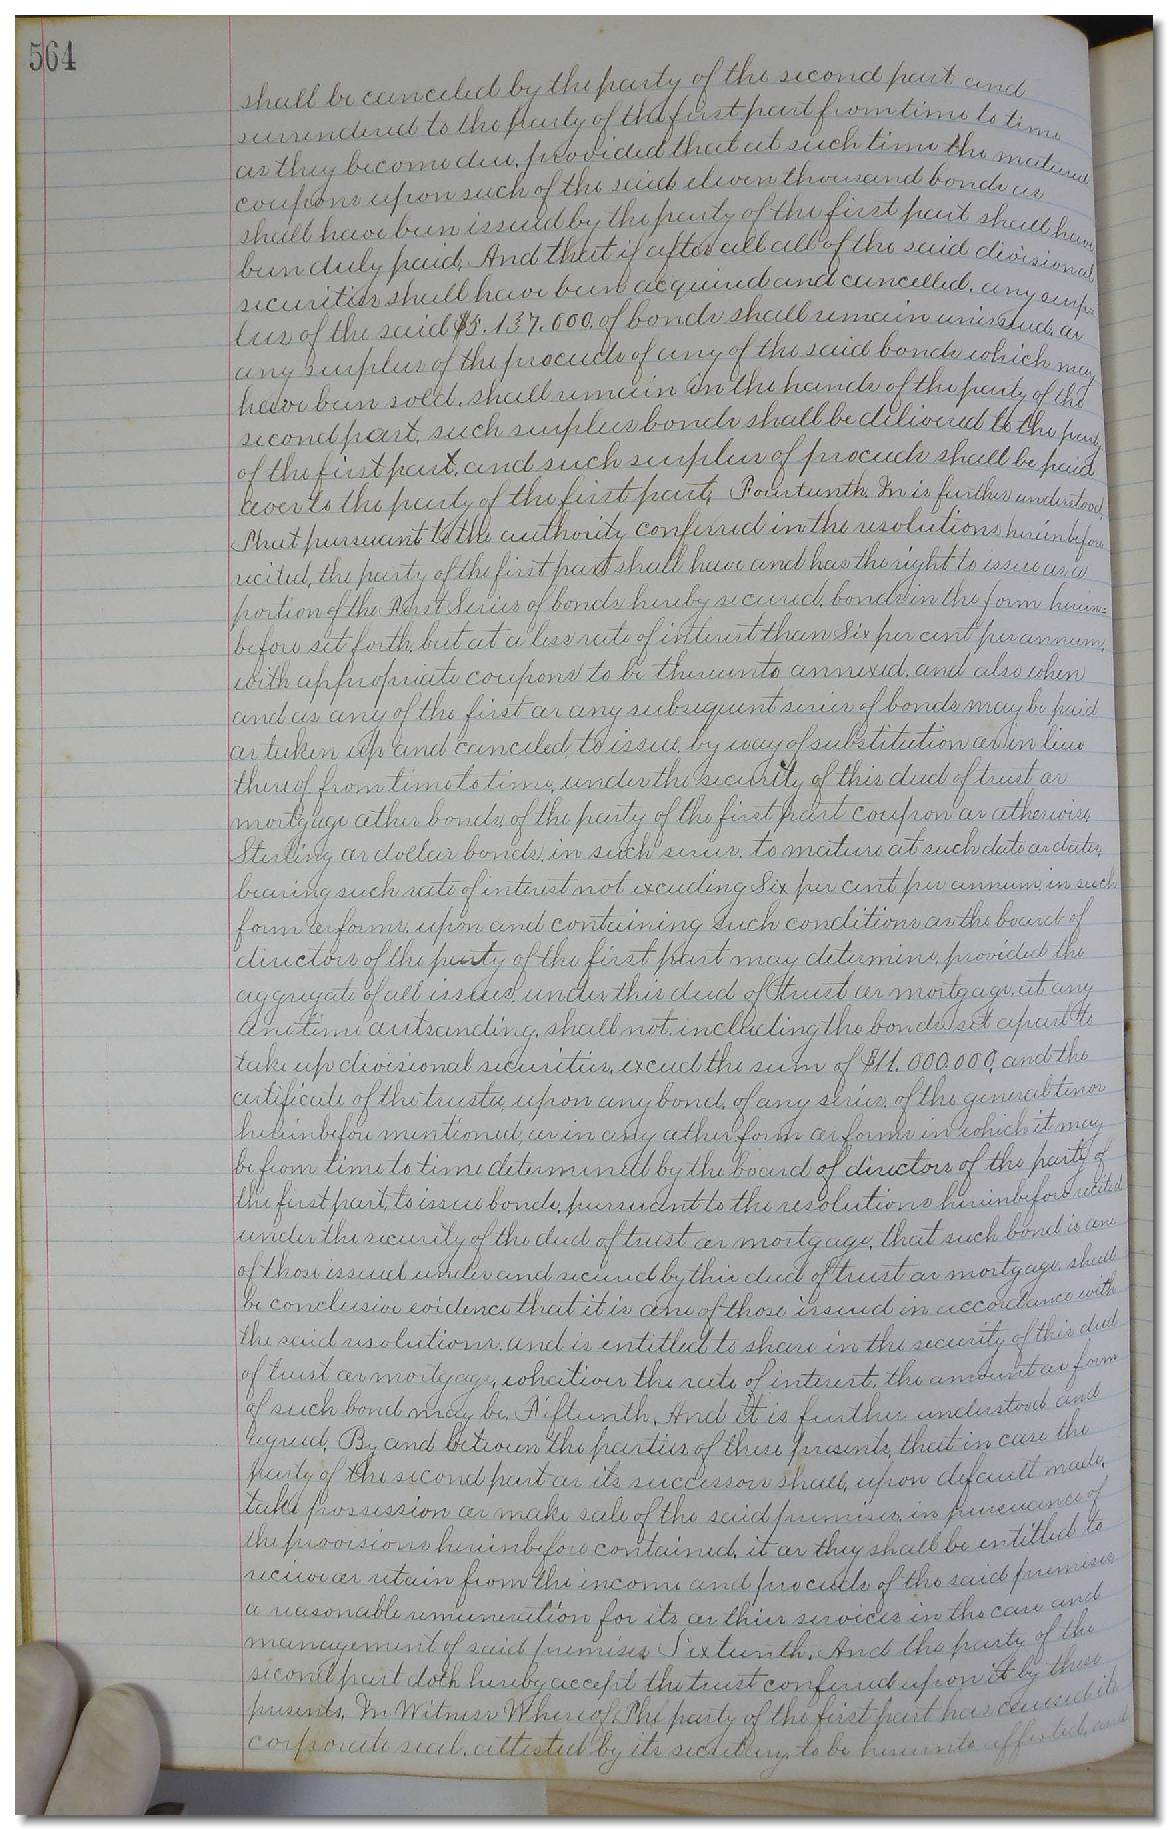 564
shall be canceled by the party of the second part and
surrendered to the party of the first part from time to time
as they become due, provided that at such time the matured
coupons upon such of the said eleven thousand bonds as
shall have been issued by the party of the first part shall have
been duly paid. And that if after all all of the said divisional
securities shall have been acquired and cancelled. any surp-
lus of the said $5.137.000. of bonds shall remain unissued. or
any surplus of the proceeds of any of the said bonds which may
have been sold. shall remain in the hands of the party of the
second part. such surplus bonds shall be delivered to the party
of the first part. and such surplus of proceeds shall be paid
over to the party of the first part. Fourteenth. In is further understood.
That pursuant to the authority conferred in the resolutions hereinbefore
recited, the party of the first part shall have and has the right to issue as a
portion of the First Series of bonds hereby secured. bonds in the form herein=
before set forth, but at a less rate of interest than Six per cent per annum.
with appropriate coupons to be thereunto annexed. and also when
and as any of the first or any subsequent series of bonds may be paid
or taken up and canceled to issue, by way of substitution or in lieu
thereof from time to time, under the security of this deed of trust or
mortgage other bonds, of the party of the first part coupon or otherwise
Sterling or dollar bonds. in such series. to mature at such date or dates,
bearing such rate of interest not exceeding Six per cent per annum, in such
form or forms, upon and containing such conditions as the board of
directors of the party of the first part may determine, provided the
aggregate of all issues, under this deed of trust or mortgage, at any
one time outsanding, shall not, including the bonds set apart to
take up divisional securities, exceed the sum of $11.000.000, and the
certificate of the trustee, upon any bond, of any series, of the general tenor
hereinbefore mentioned, or in any other form or forms in which it may
be from time to time determined by the board of directors of the party of
the first part, to issue bonds, pursuant to the resolutions hereinbefore recited
under the security of the deed of trust or mortgage, that such bond is one
of those issued under and secured by this deed of trust or mortgage, shall
be conclusive evidence that it is one of those issued in accordance with
the said resolutions. and is entitled to share in the security of this deed
of trust or mortgage, whatever the rate of interest, the amount or form
of such bond may be. Fifteenth. And it is further understood and
agreed, By and between the parties of these presents, that in case the
party of the second part or its successors shall, upon default made,
take prossession or make sale of the said premises, in pursuance of
the provisions hereinbefore contained, it or they shall be entitled to
recieve or retain from the income and proceeds of the said premises
a reasonable remuneration for its or thier services in the care and
management of said premises Sixteenth. And the party of the
second part doth hereby accept the trust conferred upon it by these
presents, In Witness Whereof, The party of the first part has caused its
corporate seal. attested by its secretary, to be hereunto affected, and